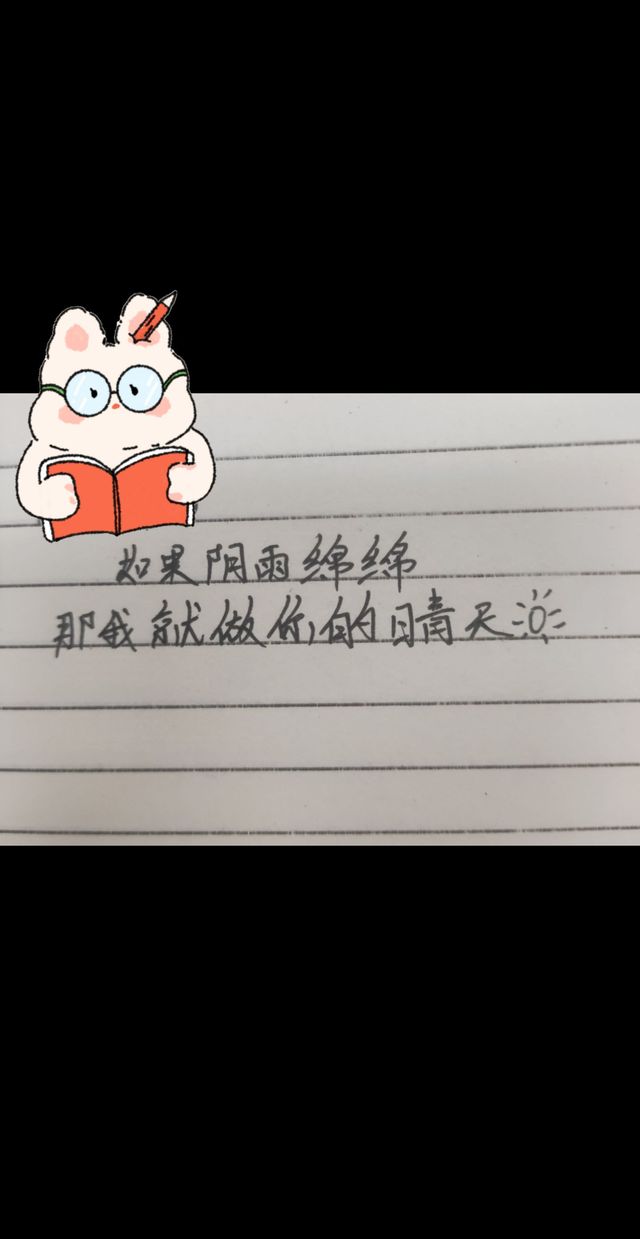 如果阴雨绵绵
那我就做你的晴天